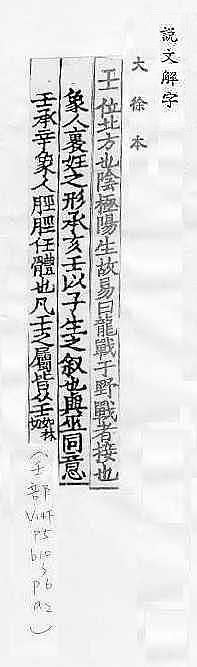 說文解字
大徐本
壬 位北方也陰極陽生故易曰龍戰于野戰者接也
象人褢妊之形承亥壬以子生之叙也與巫同意
壬承辛象人脛脛任體也凡壬之屬皆从壬 如林切
(壬部 V14下 P5 b10 P6 a2)